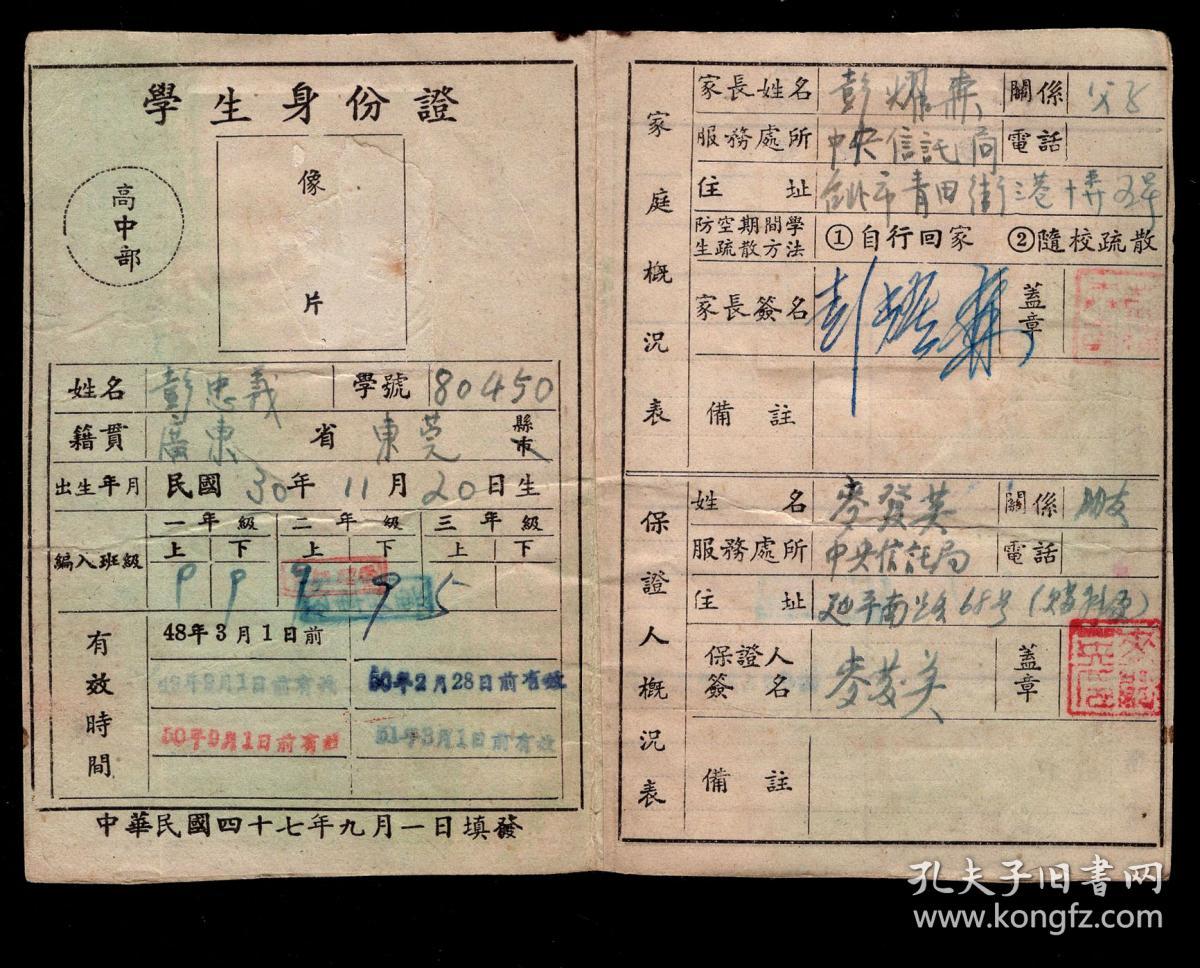 學生身份證
高中部
像
片
姓名 彭忠義 學號 80450
籍貫 廣東 省 東莞 縣市
出生年月 民國 30 年 11 月 20 日生
一年級 二年級 三年級
編入班級 上 下 上 下 上 下
9 9 9 9 5
有效時間
48年3月1日前
50年2月28日前有效
50年9月1日前有效 51年3月1日前有效
中華民國四十七年九月一日填發
家庭概況表
家長姓名 彭耀 關係 父子
服務處所 中央信託局 電話
住址 台北市青田街
防空期間學生疏散方法 ①自行回家 ②隨校疏散
家長簽名 彭耀 蓋章
備註
保證人概況表
姓名 麥發英 關係 朋友
服務處所 中央信託局 電話
住址 延平南路68号
保證人簽名 麥 蓋章
備註
孔夫子旧书网
www.kongfz.com